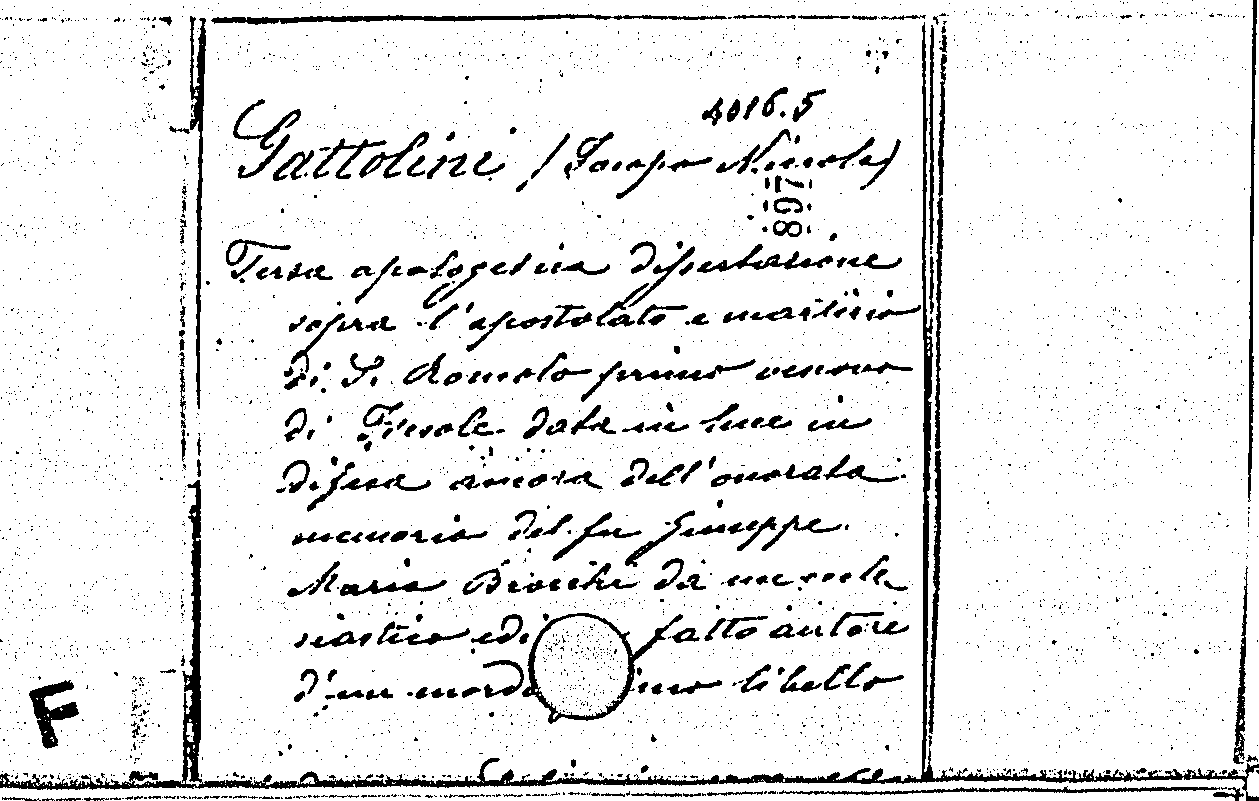 4016.5
Gattolini (Jacopo Nicola)
897
Terza apologetica dissertazione
sopra l'apostolato e martirio
di S. Romolo primo vescovo
di Fiesole data in luce in
difesa ancora dell'onorata
memoria del fu Giuseppe
Maria Brocchi da un eccle
siastico edi fatto autore
d'un mord imo libello
F